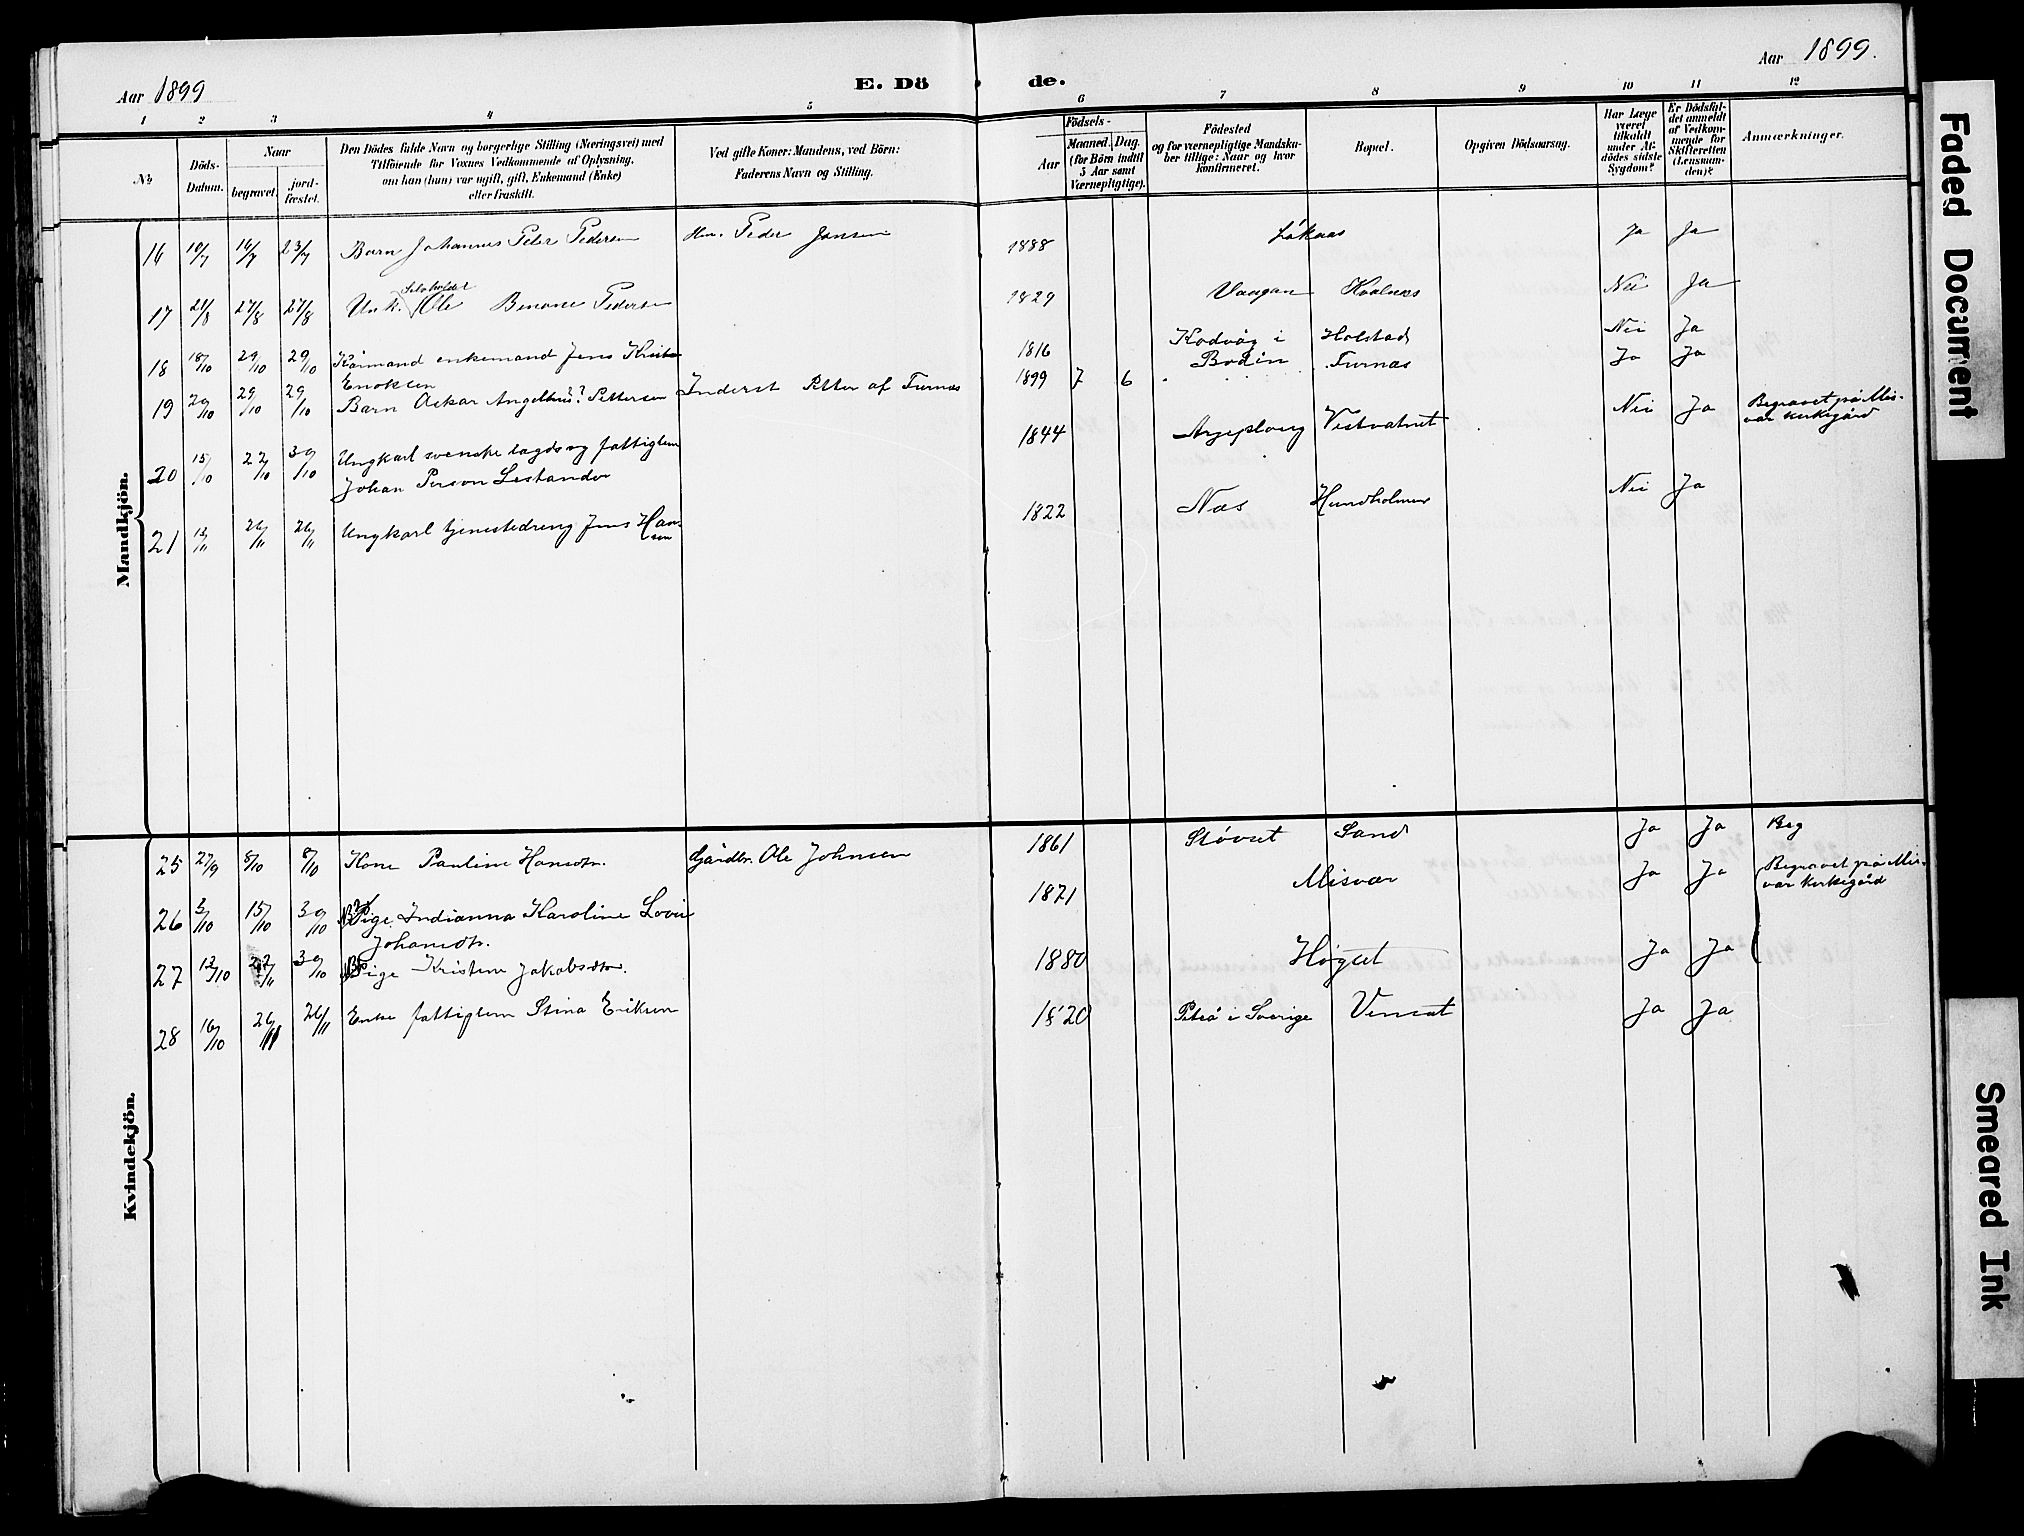 Aar 1899
E. Dö
de.
Aar 1899.
1 2 3 4 5 6 7 8 9 10 11 12
No
Döds-
Datum.
Naar
begravet.
jord-
fæstet.
Den Dödes fulde Navn og borgerlige Stilling (Næringsvei) med
Tilföiende for Voxnes Vedkommende af Oplysning,
om han (hun) var ugift, gift, Enkemand (Enke)
eller fraskilt.
Ved gifte Koner: Mandens, ved Börn:
Faderens Navn og Stilling.
Aar
Födsels-
Maaned. Dag.
(for Börn indtil
5 Aar samt
Værnepligtige).
Födested
og for værnepligtige Mandska-
ber tillige: Naar og hvor
konfirmeret.
Bopæl.
Opgiven Dödsaarsag.
Har Læge
været
tilkaldt
under Af-
dödes sidste
Sygdom?
Er Dödsfal-
det anmeldt
af Vedkom-
mende for
Skifteretten
(Lensman-
den)?
Anmærkninger.
Mandkjön.
16 10/7 16/7 23/7 Barn Johannes Peter Pedersen Hm. Peder Jensen 1888 Løkaas Ja Ja
Selvholder
17 21/8 27/8 27/8 Unk. Ole Benone Pedersen 1829 Vaagan Kvalnæs Nei Ja
18 18/10 29/10 29/10 Kårmand enkemand Jens 1816 Kodvåg i Holstad Nei Ja
Enoksen Bodin
19 20/10 29/10 29/10 Barn Oskar Angelthus? Pettersen Inderst Petter af Furnæs 1899 7 6 Furnæs Ja Ja
20 15/10 22/10 30/10 Ungkarl svenske lagds og fattiglem 1844 Arjeploug Vestvatnet Nei Ja Begravet på Mis-
Johan Person Lestander vær kirkegård
21 12/11 26/11 26/11 Ungkarl tjenestedreng Jens Han- 1822 Næs Hundholmen Nei Ja
sen
Kvindekjön.
25 27/9 8/10 8/10 Kone Pauline Hansdtr. Gårdbr. Ole Johnsen 1861 Støvset Sand Ja Ja Beg
26 3/10 15/10 30/10 Pige Indianna Karoline Lovise 1871 Misvær Ja Ja Begravet på Mis-
Johansdtr. vær kirkegård
27 12/10 22/11 30/10 Pige Kristine Jakobsdtr. 1880 Høgset Ja Ja
28 16/10 26/11 26/11 Enke fattiglem Stina Eriksen 1820 Piteå i Sverige Venset Ja Ja
Faded Document
Smeared Ink